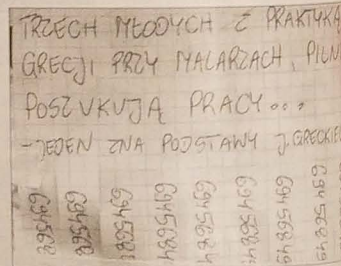 TRZECH MŁODYCH Z PRAKTYKĄ
GRECJI PRZY MALARZACH, PILN
POSZUKUJĄ PRACY...
-JEDEN ZNA PODSTAWY J. GRECKIE
694568
694568
6945684
6945684
6945684
6945684
69456849
69456849